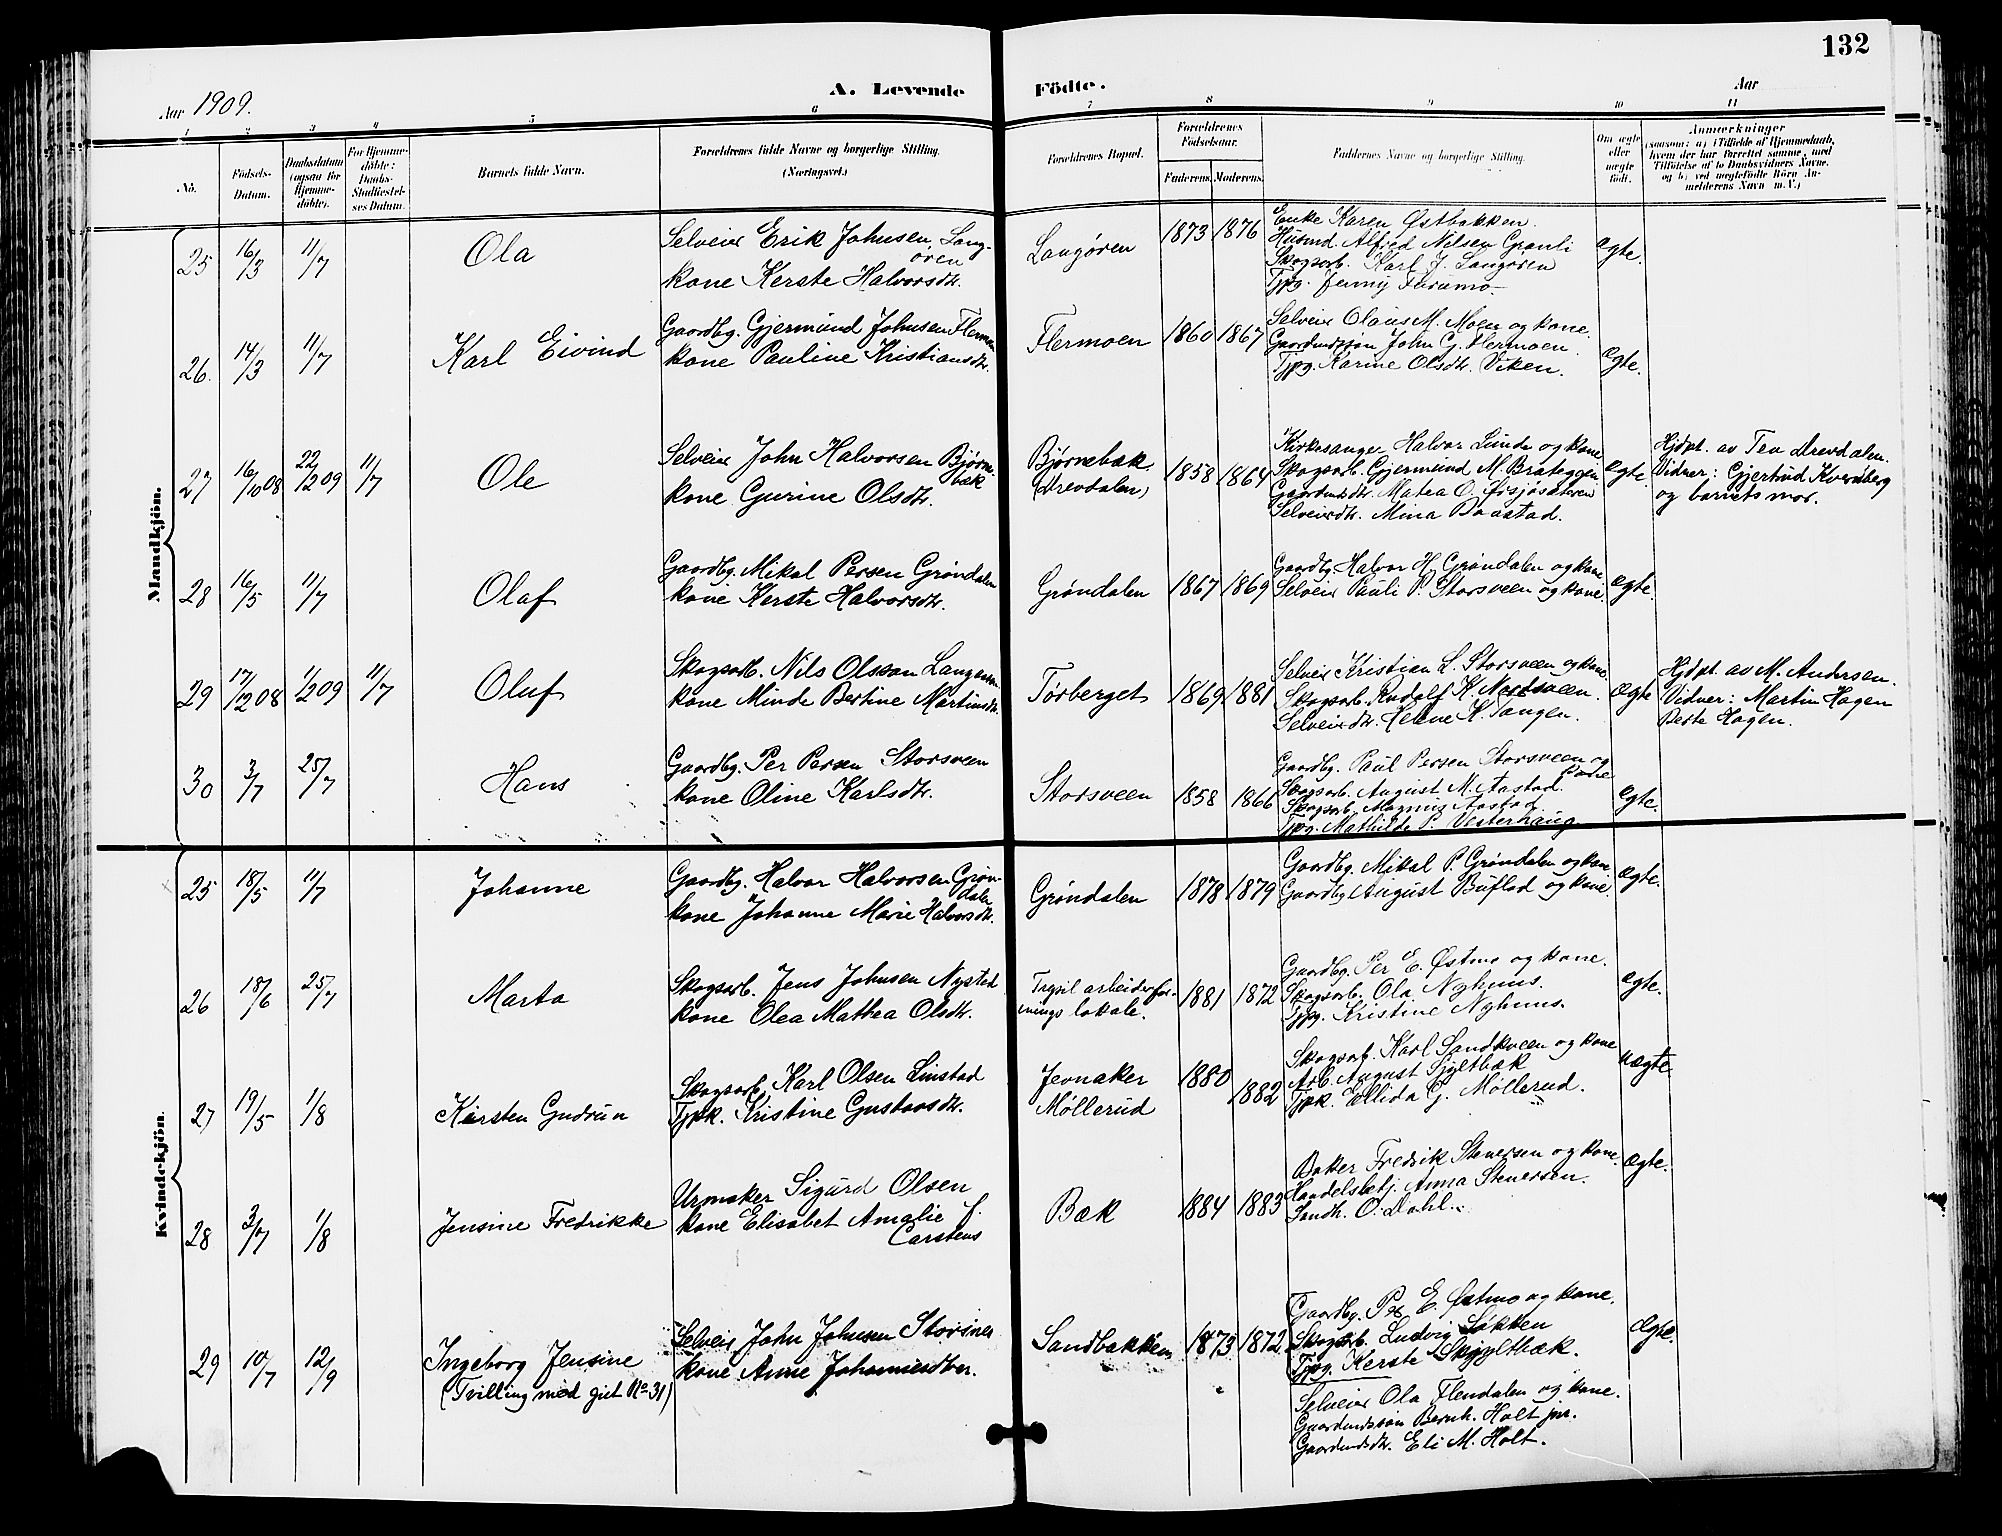 132
Aar 1909.
A. Levende Födte.
Aar
1 2 3 4 5 6 7 8 9 10 11
No.
Födsels-Datum.
Daabsdatum (ogsaa for Hjemmedöbte).
For Hjemmedöbte: Daabs-Stadfæstelses Datum.
Barnets fulde Navn.
Forældrenes fulde Navne og borgerlige Stilling.
(Næringsvei.)
Forældrenes Bopæl.
Forældrenes Födselsaar.
Faderens. Moderens.
Faddernes Navne og borgerlige Stilling.
Om ægte eller uægte födt.
Anmærkninger
(saasom: a) i Tilfælde af Hjemmedaab, hvem der har forrettet samme, med Tilföielse af to Daabsvidners Navne, og b) ved uægtefödte Börn Anmelderens Navn m. V.)
Mandkjön.
25 16/3 11/7 Ola
Selveier Erik Johnsen Langøren
kone Kerste Halvorsdtr.
Langøren 1873 1876
Enke Karen Østbakken
Husmd. Alfred Nilsen Granli
Skogsarb. Karl J. Langøren
Tjpg. Jenny Furumo
ægte.
26. 14/3 11/7 Karl Eivind
Gaardbg. Gjermund Johnsen Flermoen
kone Pauline Kristiansdtr.
Flermoen 1860 1867
Selveier Olaus M. Moen og kone.
Gaardmdssøn John G. Flermoen.
Tjpg. Karine Olsdtr. Viken.
ægte.
27 16/10 08 22/12 09 11/7 Ole
Selveier John Halvorsen Bjørnebæk
kone Gurine Olsdtr.
Bjørnebæk (Drevdalen) 1858 1864
Kirkesanger Halvor Lunde og kone
Skogsarb. Gjermund M. Brateggen
Gaardmdsdtr. Matea O. Ørsjøsæteren
Selveierdtr. Mina Baastad.
ægte.
Hjdpt. av Tea Drevdalen.
Vidner: Gjertrud Kvernberg
og barnets mor.
28 16/5 11/7 Olaf
Gaardbg. Mikal Persen Grøndalen
kone Kerste Halvorsdtr.
Grøndalen 1867 1869
Gaardbg. Halvor H. Grøndalen og kone
Selveier Pauli P. Storsveen og kone.
ægte.
29 17/12 08 1/2 09 11/7 Oluf
Skogsarb. Nils Olsson
kone Minde Bertine Martinsdtr.
Tørberget 1869 1881
Selveier Kristian L. Storsveen og kone
Skogsarb. Rudolf K. Nordsveen.
Selveierdtr. Helene K. Tangen.
ægte
Hjdpt. av M. Andersen.
Vidner: Martin Hagen
Berte Hagen.
30 3/7 25/7 Hans
Gaardbg. Per Persen Storsveen
kone Oline Karlsdtr.
Storsveen 1858 1866
Gaardbg. Paul Persen Storsveen og kone
Skogsarb. August M. Aastad.
Skogsarb. Magnus Aastad.
Tjpg. Mathilde P. Vesterhaug
ægte.
Kvindekjön.
25 18/5 11/7 Johanne
Gaardbg. Halvor Halvorsen Grøndalen
kone Johanne Marie Halvorsdtr.
Grøndalen 1878 1879
Gaardbg. Mikal P. Grøndalen og kone
Gaardbg August Buflod og kone
ægte.
26 18/6 25/7 Marta
Skogsarb. Jens Johnsen Nystad
kone Olea Mathea Olsdtr.
Trysil arbeiderforenings lokale. 1881 1872
Gaardbg. Per E. Østmo og kone.
Skogsarb. Ola Nyhuus.
Tjpg. Kristine Nyhuus.
ægte.
27 19/5 1/8 Kirsten Gudrun
Skogsarb. Karl Olsen Linstad
Tjpk. Kristine Gustavsdtr.
Jevnaker 1880
Møllerud 1882
Skogsarb. Karl Sandkveen og kone
Arb. August Sjyltbæk
Tjpk. Ellida G. Møllerud.
uægte.
28 3/7 1/8 Jensine Fredrikke
Urmaker Sigurd Olsen
kone Elisabet Amalie J. Carstens
Bæk 1884 1883
Baker Fredrik Stenersen og kone.
Handelsbetj. Anna Stenersen.
Landh. O. Dahl.
ægte.
29 10/7 12/9 Ingeborg Jensine
(Tvilling med gut No 31)
Selveier John Johnsen
kone Anne Johannesdtr.
Sandbakken 1873 1872
Gaardbg. Per E. Østmo og kone.
Skogsarb. Ludvig Løkken
Tjpg. Kerste Skjyltbæk.
Selveier Ola Flendalen og kone.
Gaardmdssøn Bernh. Holt jnr.
Gaardmdsdtr. Eli M. Holt.
ægte.